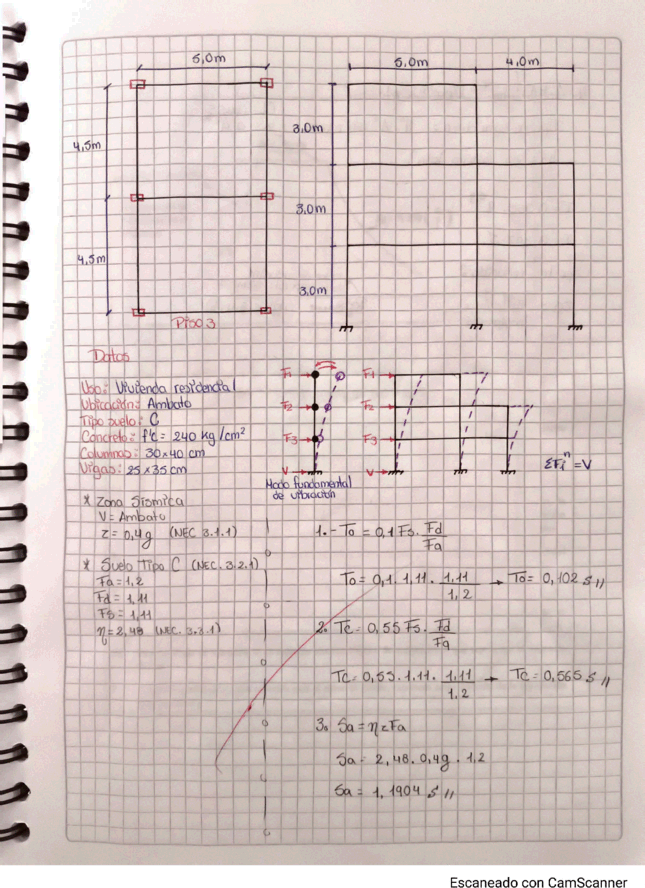 5,0m
5,0m
4,0m
4,5m
4,5m
3,0m
3,0m
3,0m
Piso 3
Datos
Uso: Vivienda residencial
Ubicación: Ambato
Tipo suelo: C
Concreto: f'c = 240 kg/cm²
Columnas: 30x40 cm
Vigas: 25x35 cm
F1
F2
F3
V
Modo fundamental
de vibración
F1
F2
F3
V
ΣFiⁿ = V
* Zona Sísmica
V = Ambato
z = 0,4g (NEC 3.1.1)
* Suelo Tipo C (NEC. 3.2.1)
Fa = 1,2
Fd = 1,11
Fs = 1,11
η = 2,48 (NEC. 3.3.1)
1.- To = 0,1 Fs. Fd/Fa
To = 0,1. 1,11. 1,11/1,2 → To = 0,102 s //
2. Tc = 0,55 Fs. Fd/Fa
Tc = 0,55. 1,11. 1,11/1,2 → Tc = 0,565 s //
3. Sa = ηzFa
Sa = 2,48. 0,4g. 1,2
Sa = 1,1904 s //
Escaneado con CamScanner